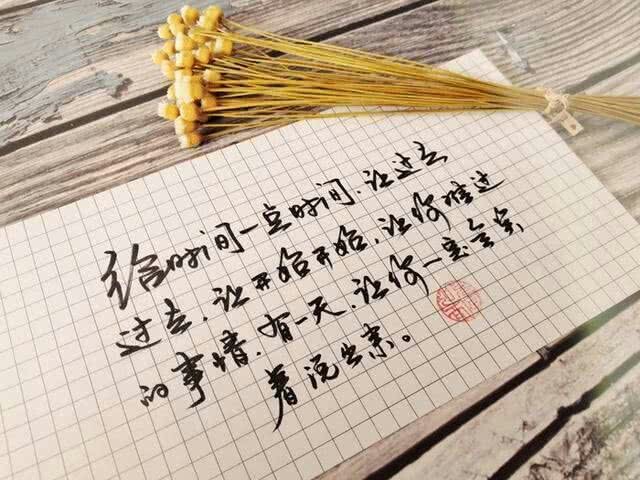 给时间一点时间,让过去
过去,让开始开始,让你难过
的事情,有一天,让你一定会笑
着说出来。